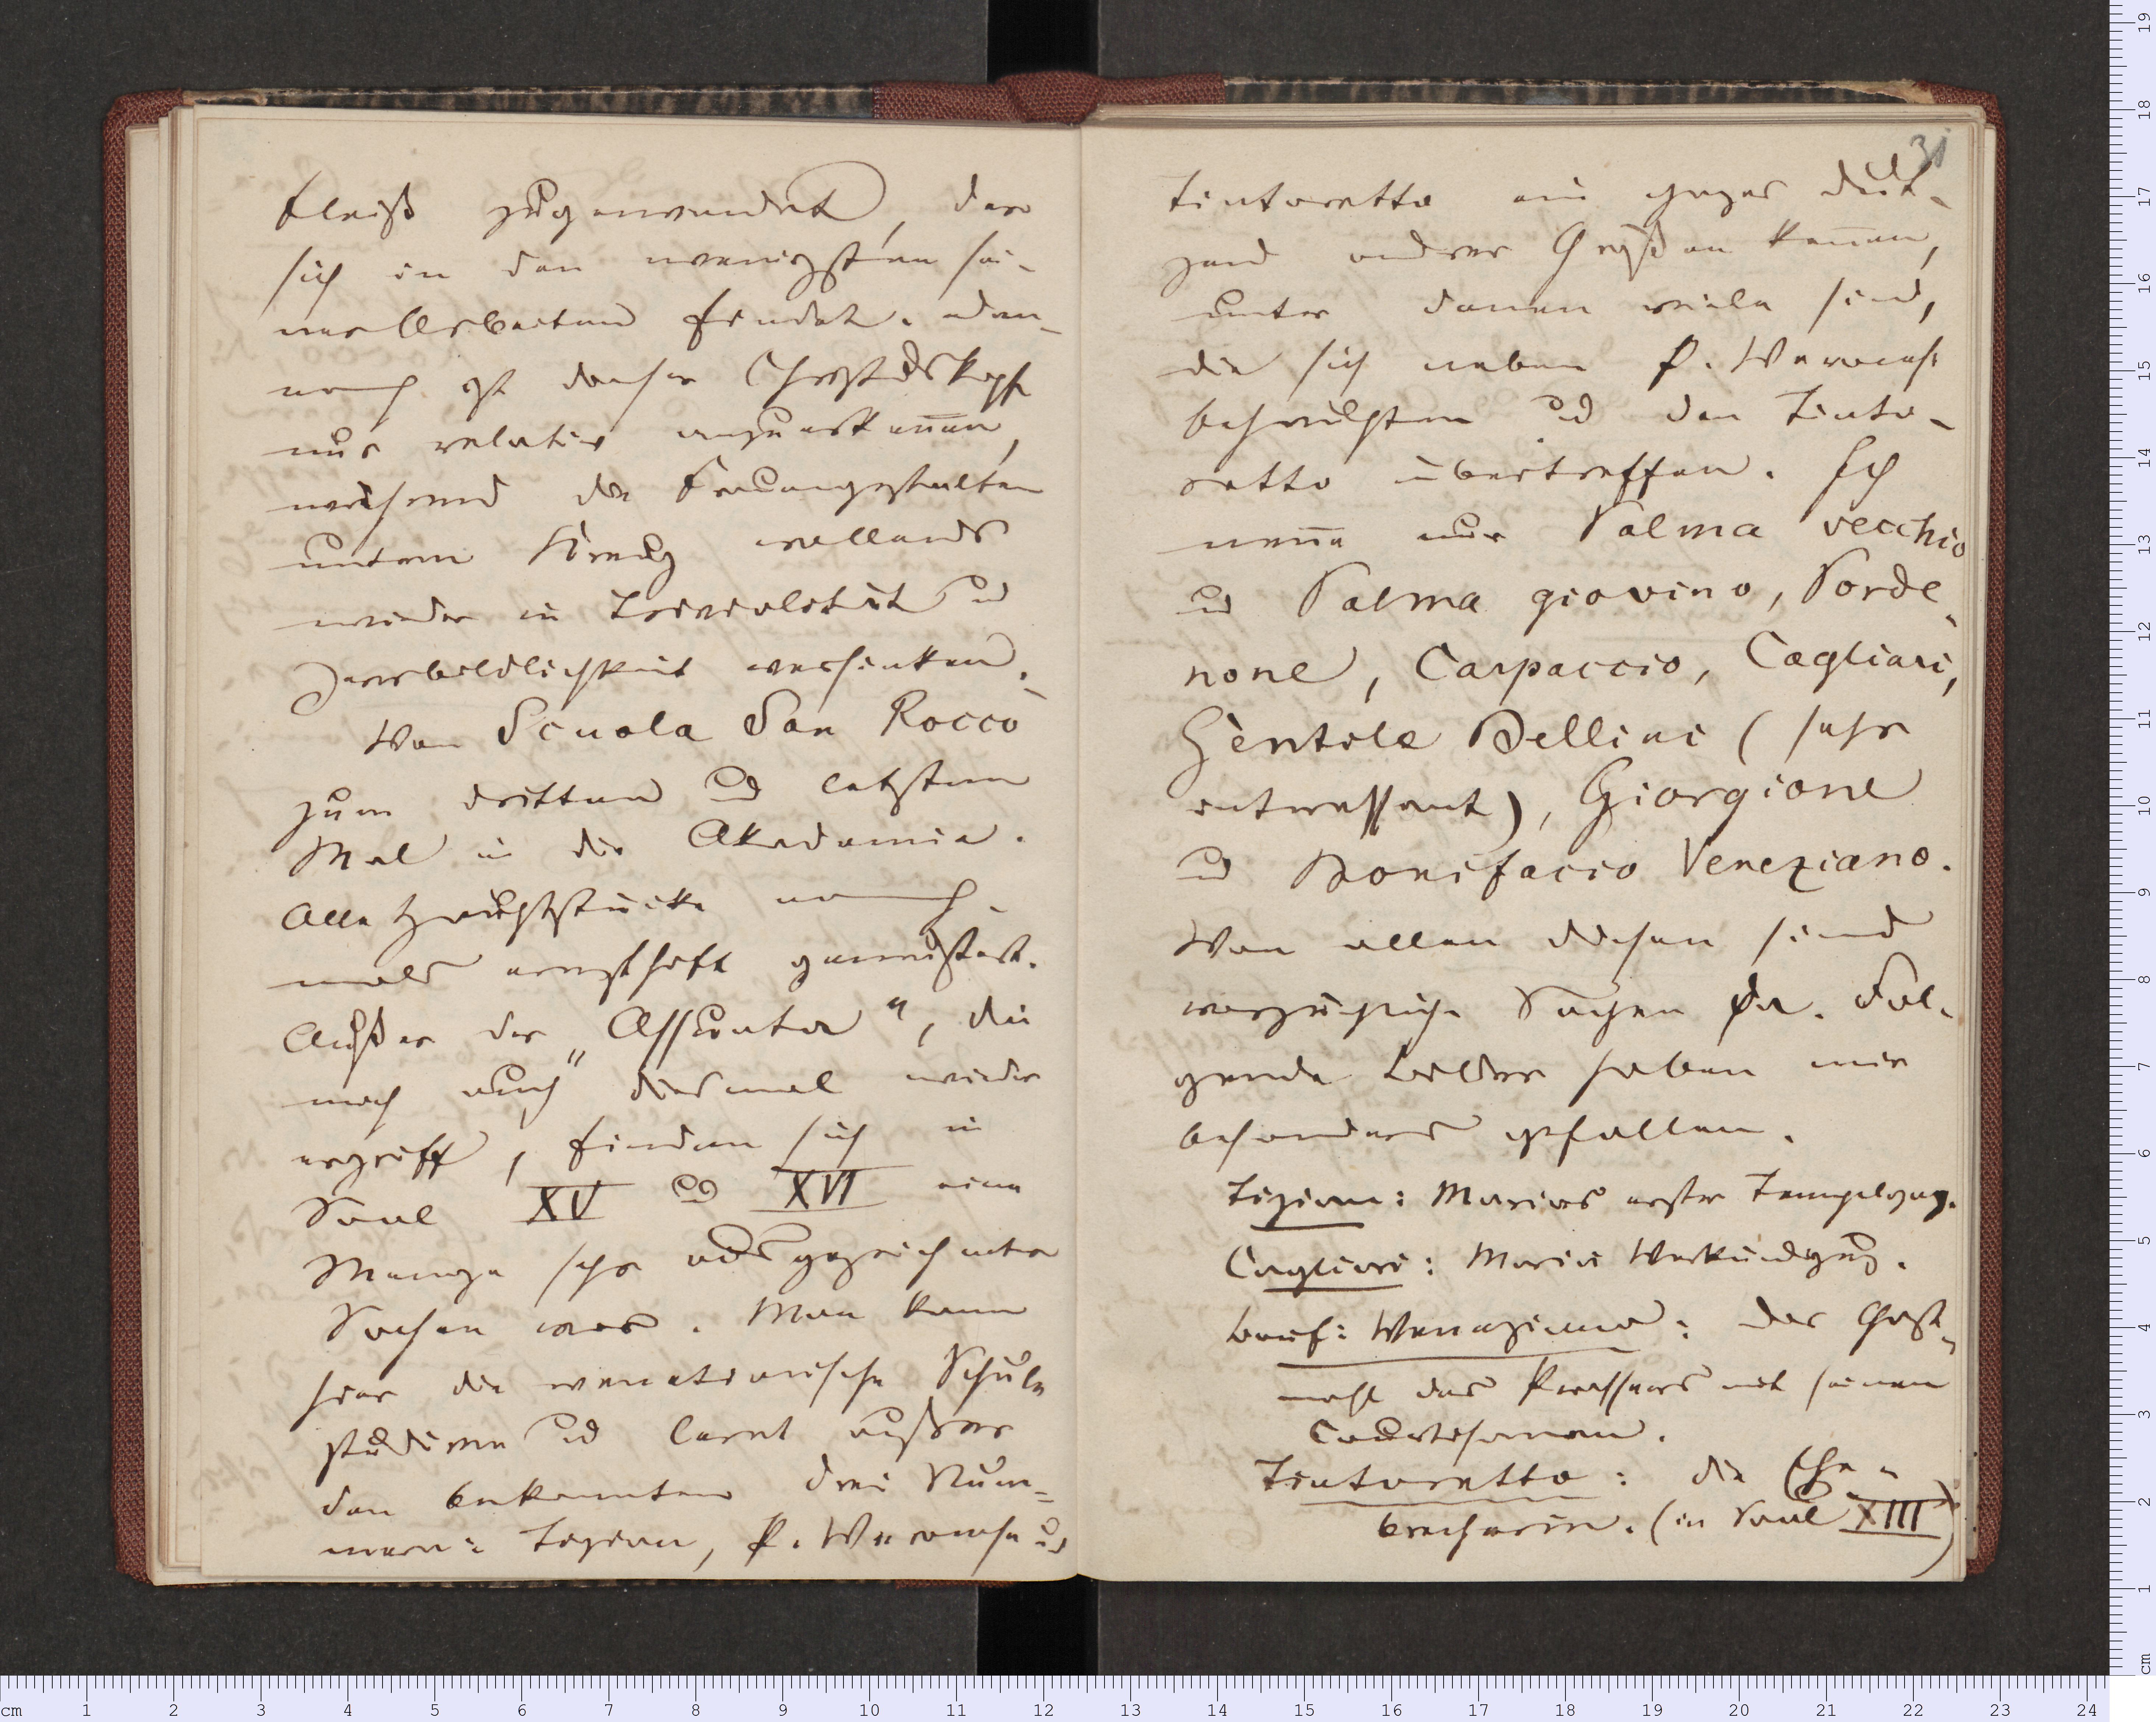 Fleiß zugewendet, der
sich in den wenigsten sei-
ner Arbeiten findet. Den-
noch ist dieser Christuskopf
nur relativ anzuerkennen,
während die Frauengestalten
unterm Kreuz vollends
wieder in Trivialität und
Zerrbildlichkeit versinken.
Von Scuola San Rocco
zum dritten und letzten
Mal in die Akademie.
Alle Hauptstücke noch-
mals ernsthaft gemustert.
Außer der „Assunta", die
mich auch diesmal wieder
ergriff, finden sich in
Saal XV und XVI eine
Menge sehr ausgezeichneter
Sachen vor. Man kann
hier die venetianische Schule
studiren und lernt außer
den bekannten drei Num-
mern: Tizian, P. Veronese und
31
Tintoretto ein ganzes Dut-
zend andrer Größen kennen,
unter denen viele sind,
die sich neben P. Verones.
behaupten und den Tinto-
retto übertreffen. Ich
nenne nur Palma vecchio
und Palma giovino, Porde-
none, Carpaccio, Cagliari,
Gentile Bellini (sehr
interessant), Giorgione
und Bonifacio Veneziano.
Von allen diesen sind
vorzügliche Sachen da. Fol-
gende Bilder haben mir
besonders gefallen.
Tizian: Marias erster Tempelgang.
Cagliari: Mariä Verkündigung.
Bonif: Veneziano: Das Gast-
mahl des Prassers mit seinen
Courtisanen.
Tintoretto: die Ehe-
brecherin. (in Saal XIII)